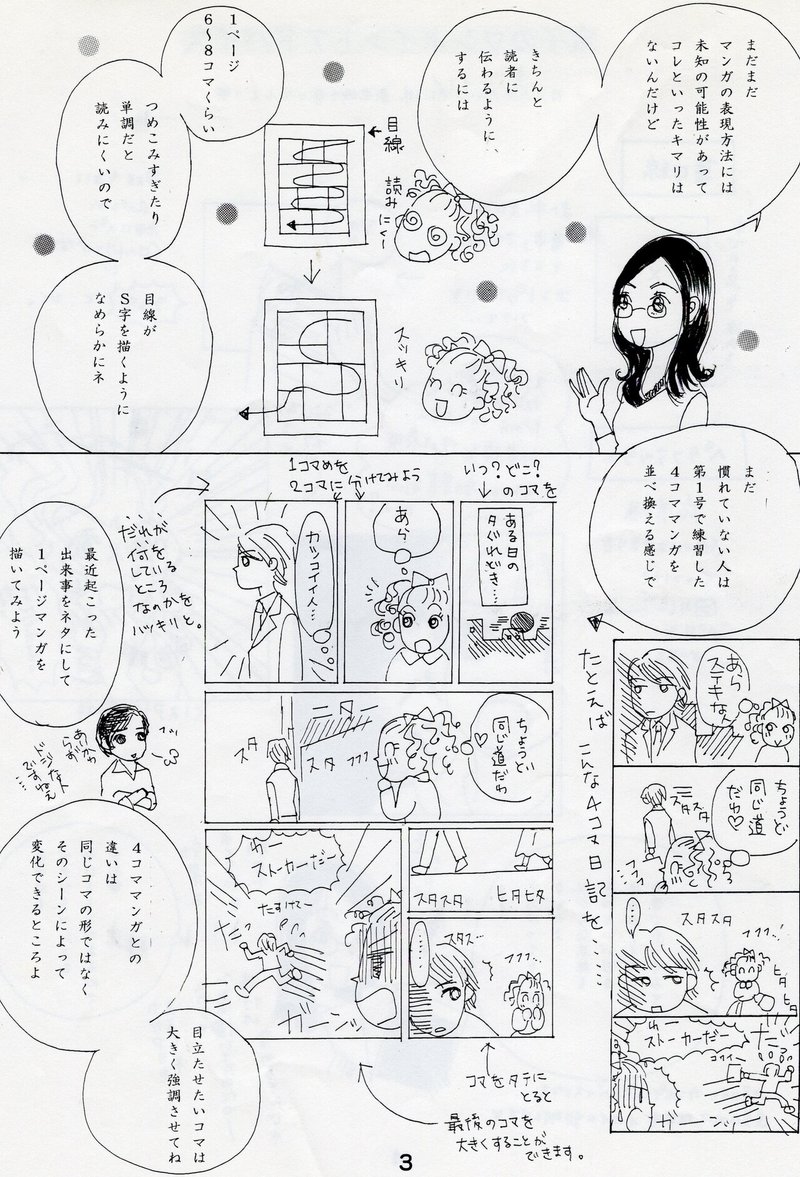 まだまだ
マンガの表現方法には
未知の可能性があって
コレといったキマリは
ないんだけど
きちんと
読者に
伝わるように、
するには
1ページ
6〜8コマくらい
つめこみすぎたり
単調だと
読みにくいので
目線
読みにくー
目線が
S字を描くように
なめらかにネ
スッキリ
まだ
慣れていない人は
第1号で練習した
4コママンガを
並べ換える感じで
たとえば こんな4コマ日記を……
あら
ステキな人
ちょうど
同じ道
だわ♡
スタスタ
……
スタスタ
フフフ…
ヒタ
ヒタ
わー
ストーカーだー
だー
いつ?どこ?
のコマを
1コマめを
2コマに分けてみよう
ある日の
夕ぐれどき…
あら
カッコイイ人…
だれが
何をしているところ
なのかを
ハッキリと。
ちょうど
同じ道だわ
フフフ
スタ
スタ
スタスタ
ヒタヒタ
スタス…
フフフ…
……
わー
ストーカーだー
たすけてー
ガーン
ガーン
コマをタテに
とると
最後のコマを
大きくすることが
できます。
最近起こった
出来事をネタにして
1ページマンガを
描いてみよう
4コママンガとの
違いは
同じコマの形ではなく
そのシーンによって
変化できるところよ
目立たせたいコマは
大きく強調させてね
3